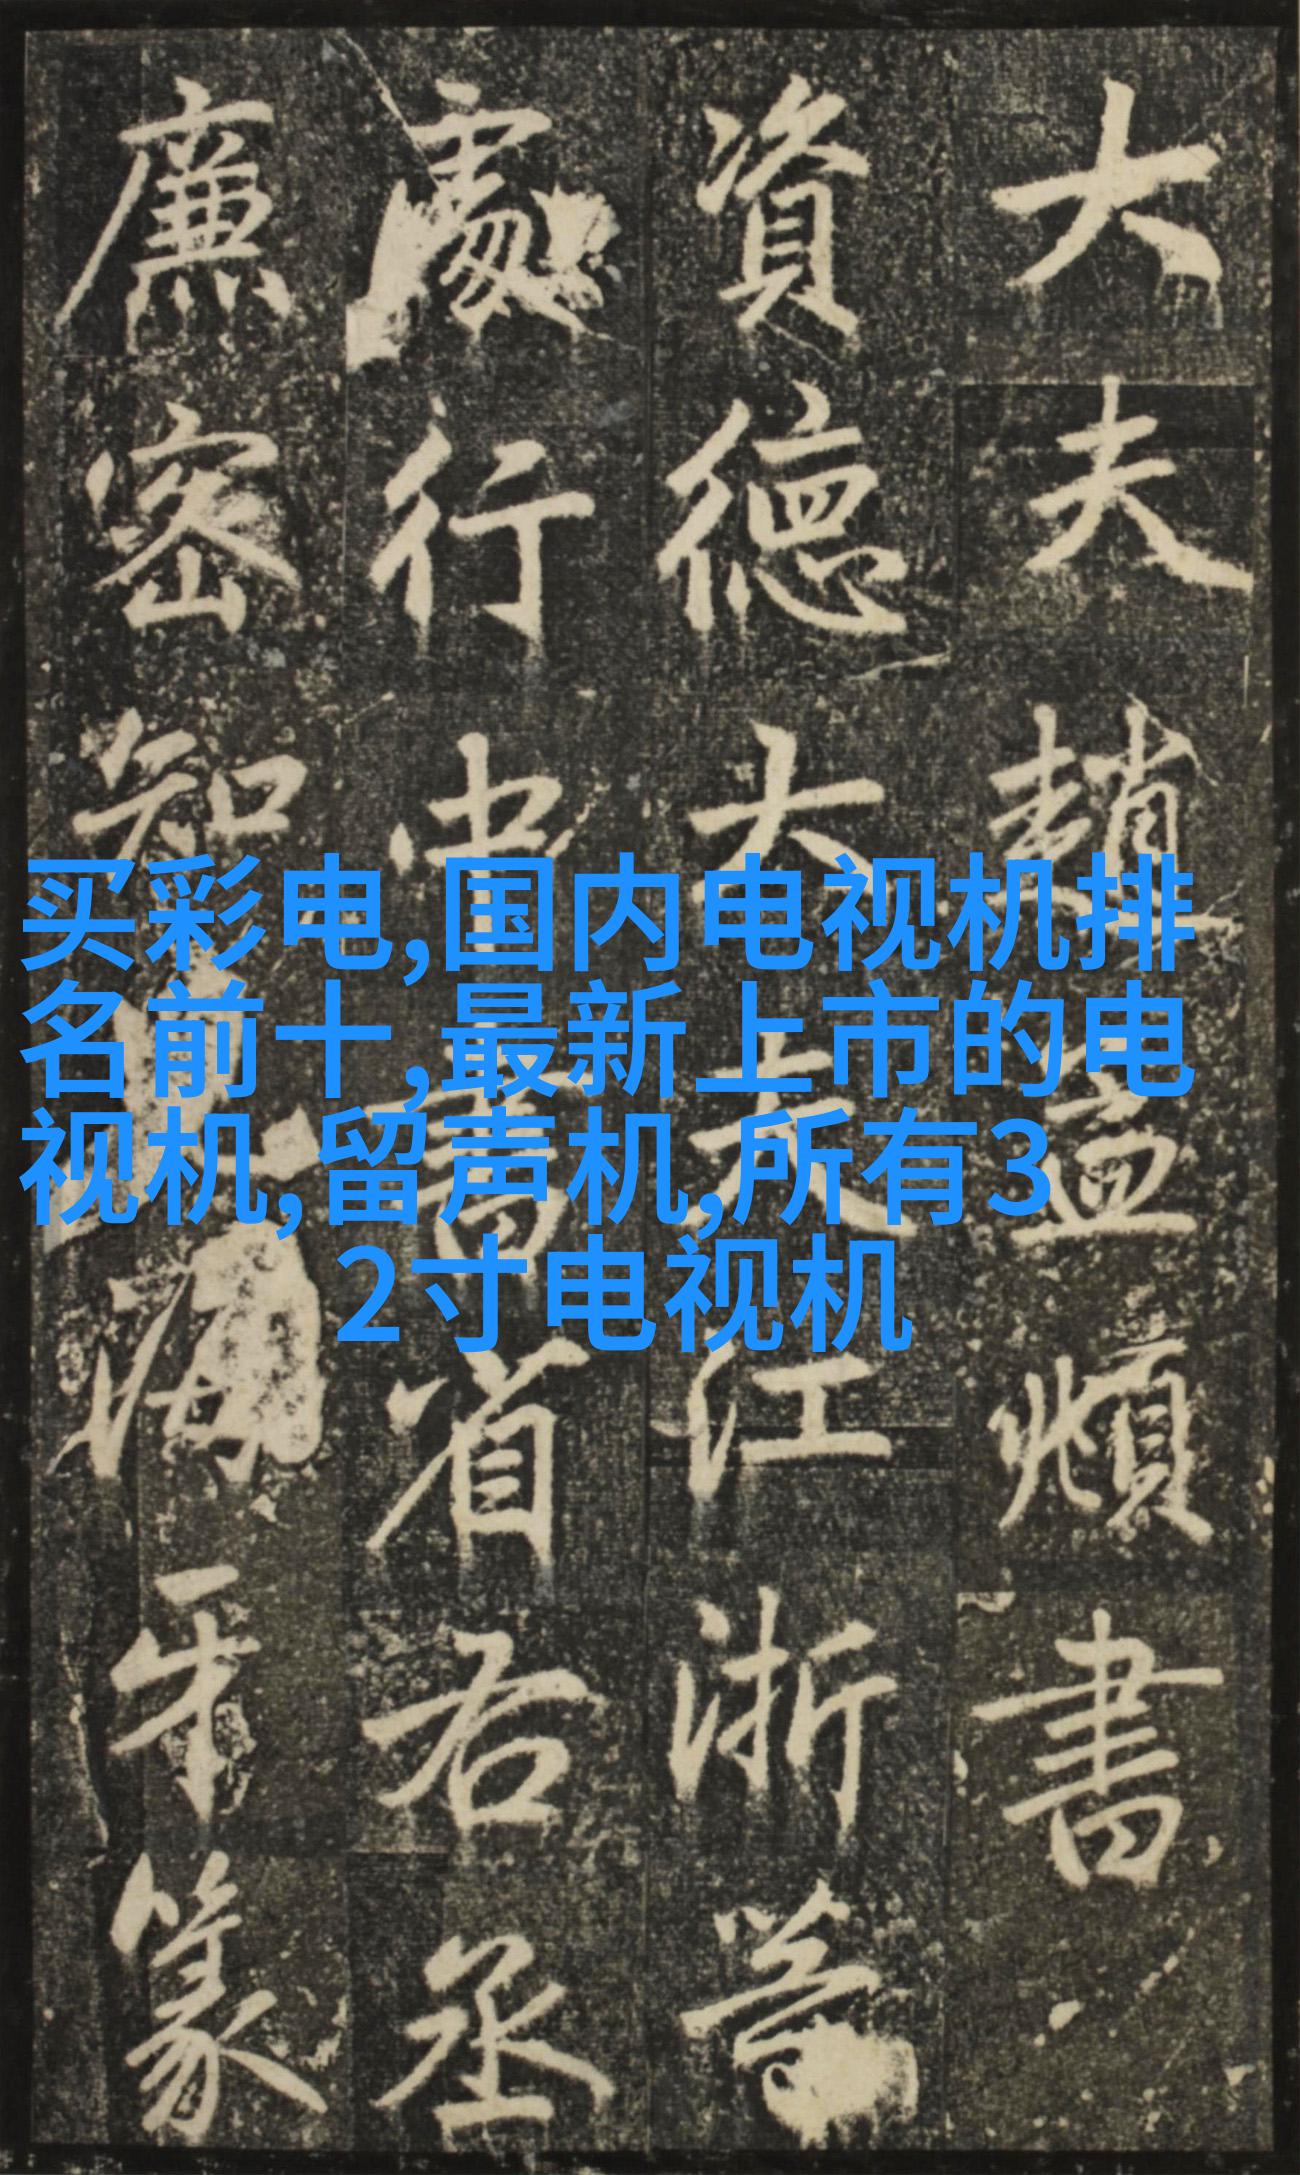 大夫趙孟頫書
資德大夫江浙等
處行中書省右丞
廉密知海牙篆
买彩电,国内电视机排
名前十,最新上市的电
视机,留声机,所有3
2寸电视机